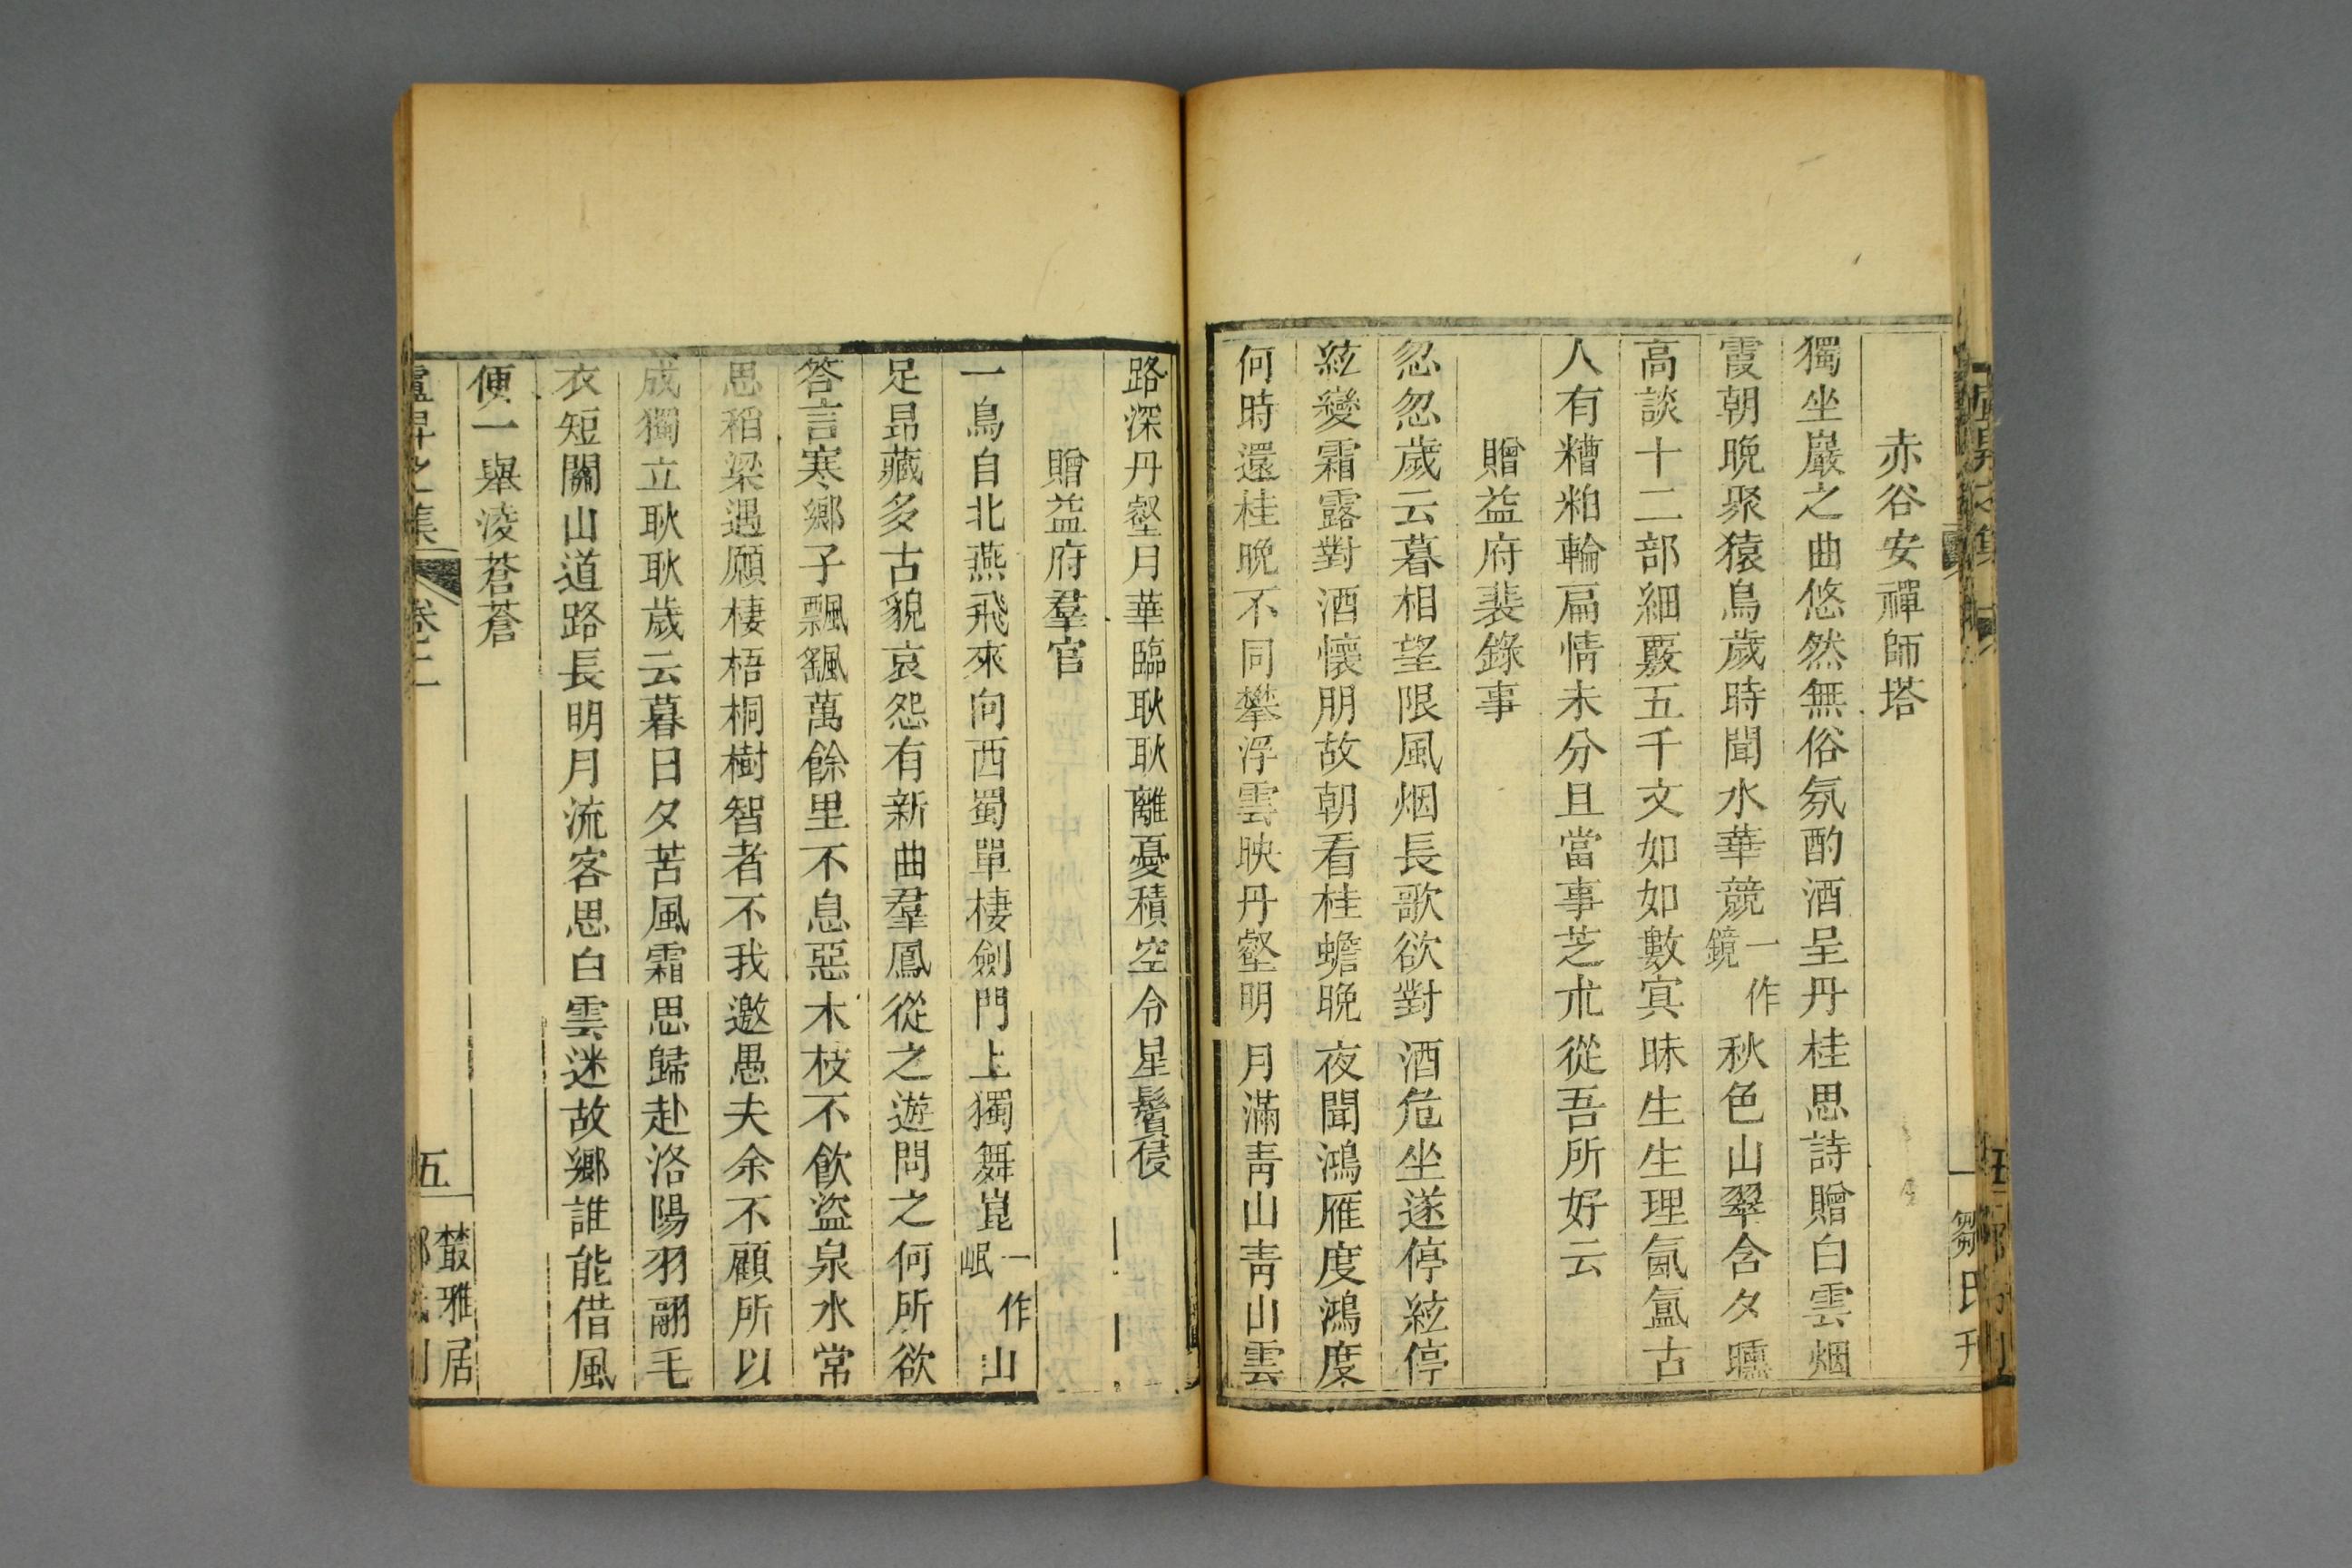 赤谷安禪師塔
獨坐巖之曲悠然無俗氛酌酒呈丹桂思詩贈白雲烟
霞朝晚聚猿鳥歲時聞水華競一作鏡秋色山翠含夕曛
高談十二部細覈五千文如如數冥昧生生理氤氳古
人有糟粕輪扁情未分且當事芝朮從吾所好云
贈益府裴錄事
忽忽歲云暮相望限風烟長歌欲對酒危坐遂停絃停
絃變霜露對酒懷朋故朝看桂蟾晚夜聞鴻雁度鴻度
何時還桂晚不同攀浮雲映丹壑明月滿靑山靑山雲
鄒氏刊
路深丹壑月華臨耿耿離憂積空令星鬢侵
贈益府羣官
一鳥自北燕飛來向西蜀單棲劍門上獨舞崑一作岷山
足昻藏多古貌哀怨有新曲羣鳳從之遊問之何所欲
答言寒鄉子飄颻萬餘里不息惡木枝不飲盜泉水常
思稻粱遇願棲梧桐樹智者不我邀愚夫余不顧所以
成獨立耿耿歲云暮日夕苦風霜思歸赴洛陽羽翮毛
衣短關山道路長明月流客思白雲迷故鄉誰能借風
便一舉淩蒼蒼
盧昇之集 卷二 五 叢雅居